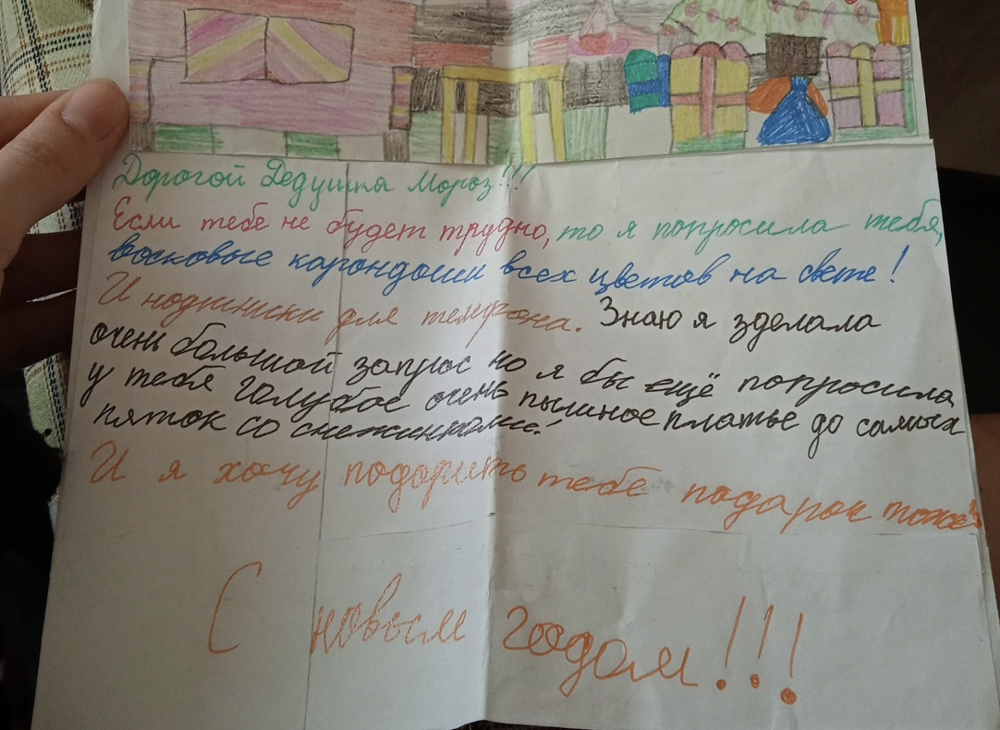 Дорогой Дедушка Мороз!!!
Если тебе не будет трудно, то я попросила тебя,
восковые карондоши всех цветов на свете!
И
для
Знаю я зделала
очень большой запрос но я бы ещё попросила
у тебя голубое очень пышное платье до самых
пяток со снежинками!
И я хочу подорить тебе подарок тоже!
С новым годом!!!